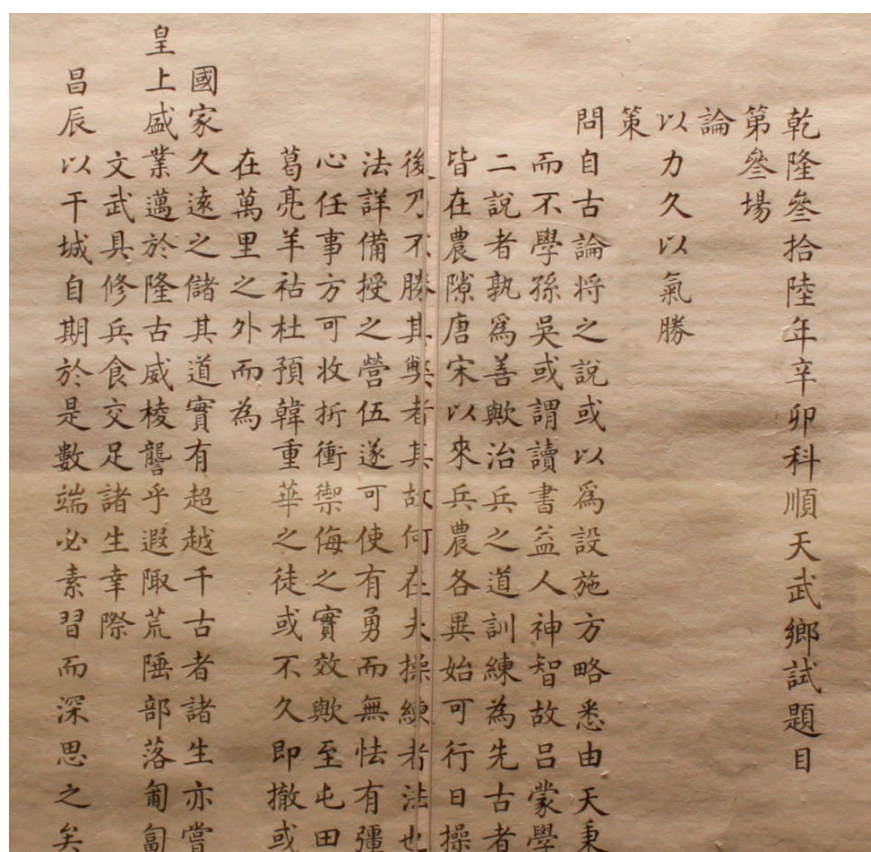 乾隆叄拾陸年辛卯科順天武鄉試題目
第叄場
論
以力久以氣勝
策
問自古論將之說或以爲設施方略悉由天秉
而不學孫吳或謂讀書益人神智故呂蒙學
二說者孰爲善歟治兵之道訓練為先古者
皆在農隙唐宋以來兵農各異始可行日操
後乃不勝其弊者其故何在夫操練者法也
法詳備授之營伍遂可使有勇而無怯有彊
心任事方可收折衝禦侮之實效歟至屯田
葛亮羊祜杜預韓重華之徒或不久即撤或
在萬里之外而為
國家久遠之儲其道實有超越千古者諸生亦嘗
皇上盛業邁於隆古威棱讋乎遐陬荒陲部落匍匐
文武具修兵食交足諸生幸際
昌辰以干城自期於是數端必素習而深思之矣